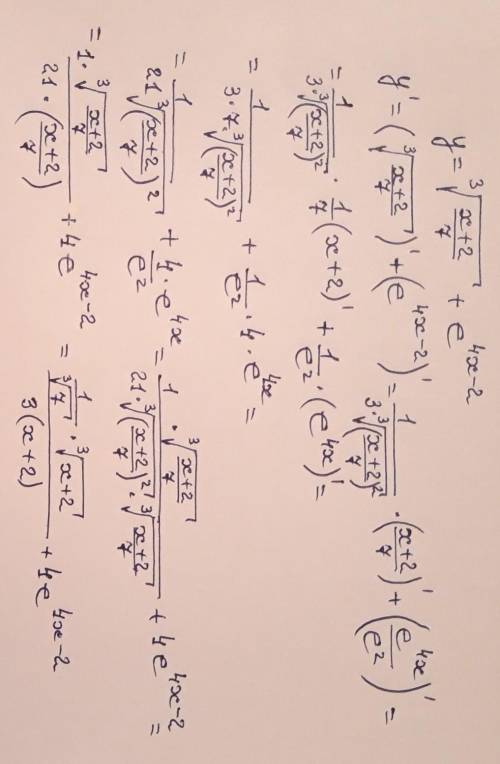 y = ∛((x+2)/7) + e^(4x-2)
y' = (∛((x+2)/7))' + (e^(4x-2))' = 1/(3·∛(((x+2)/7)²)) · ((x+2)/7)' + (e^(4x)/e²)' =
= 1/(3·∛(((x+2)/7)²)) · 1/7 (x+2)' + 1/e² · (e^(4x))' =
= 1/(3·7·∛(((x+2)/7)²)) + 1/e² · 4 · e^(4x) =
= 1/(21∛(((x+2)/7)²)) + 4/e² · e^(4x) = (1 · ∛((x+2)/7))/(21·∛(((x+2)/7)²)·∛((x+2)/7)) + 4e^(4x-2) =
= (1·∛((x+2)/7))/(21·((x+2)/7)) + 4e^(4x-2) = (1/∛7 · ∛(x+2))/(3(x+2)) + 4e^(4x-2)